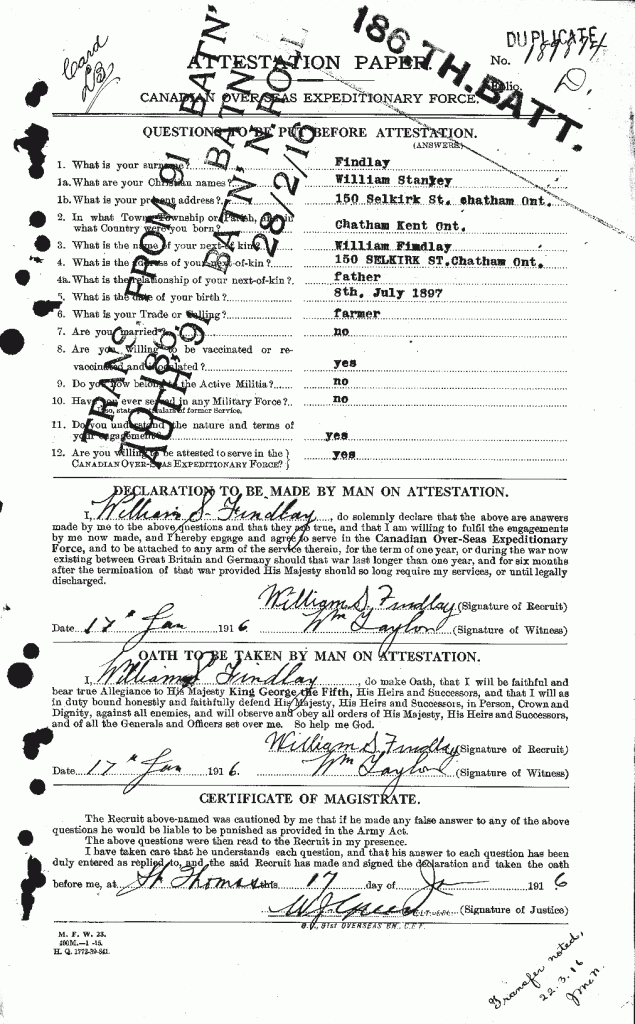 Card
186 TH. BATT.
DUPLICATE
ATTESTATION PAPER.
No. 189874
Folio.
D.
CANADIAN OVER-SEAS EXPEDITIONARY FORCE.
TRANS FROM 91 BATN'
TO 186 BATN'
AUTH' 91 BATN' N ROLL
28/2/16
QUESTIONS TO BE PUT BEFORE ATTESTATION.
(ANSWERS)
1. What is your surname? Findlay
1a. What are your Christian names? William Stanley
1b. What is your present address? 150 Selkirk St. chatham Ont.
2. In what Town, Township or Parish, and in
what Country were you born? Chatham Kent Ont.
3. What is the name of your next-of kin? William Findlay
4. What is the address of your next-of-kin? 150 SELKIRK ST.Chatham Ont.
4a. What is the relationship of your next-of-kin? father
5. What is the date of your birth? 8th. July 1897
6. What is your Trade or Calling? farmer
7. Are you married? no
8. Are you willing to be vaccinated or re-
vaccinated and inoculated? yes
9. Do you now belong to the Active Militia? no
10. Have you ever served in any Military Force? no
If so, state particulars of former Service.
11. Do you understand the nature and terms of
your engagement? yes
12. Are you willing to be attested to serve in the
CANADIAN OVER-SEAS EXPEDITIONARY FORCE? yes
DECLARATION TO BE MADE BY MAN ON ATTESTATION.
I, William S. Findlay, do solemnly declare that the above are answers
made by me to the above questions and that they are true, and that I am willing to fulfil the engagements
by me now made, and I hereby engage and agree to serve in the Canadian Over-Seas Expeditionary
Force, and to be attached to any arm of the service therein, for the term of one year, or during the war now
existing between Great Britain and Germany should that war last longer than one year, and for six months
after the termination of that war provided His Majesty should so long require my services, or until legally
discharged.
William S. Findlay (Signature of Recruit)
Date 17th Jan 1916 Wm Taylor (Signature of Witness)
OATH TO BE TAKEN BY MAN ON ATTESTATION.
I, William S. Findlay, do make Oath, that I will be faithful and
bear true Allegiance to His Majesty King George the Fifth, His Heirs and Successors, and that I will as
in duty bound honestly and faithfully defend His Majesty, His Heirs and Successors, in Person, Crown and
Dignity, against all enemies, and will observe and obey all orders of His Majesty, His Heirs and Successors,
and of all the Generals and Officers set over me. So help me God.
William S. Findlay (Signature of Recruit)
Date 17th Jan 1916 Wm Taylor (Signature of Witness)
CERTIFICATE OF MAGISTRATE.
The Recruit above-named was cautioned by me that if he made any false answer to any of the above
questions he would be liable to be punished as provided in the Army Act.
The above questions were then read to the Recruit in my presence.
I have taken care that he understands each question, and that his answer to each question has been
duly entered as replied to, and the said Recruit has made and signed the declaration and taken the oath
before me, at St Thomas this 17 day of Jan 1916
W J Green LT-COL. (Signature of Justice)
O.C. 91st OVERSEAS BN. C.E.F.
M. F. W. 23.
400M.—1-15.
H. Q. 1772-39-841.
Transfer noted,
22.3.16